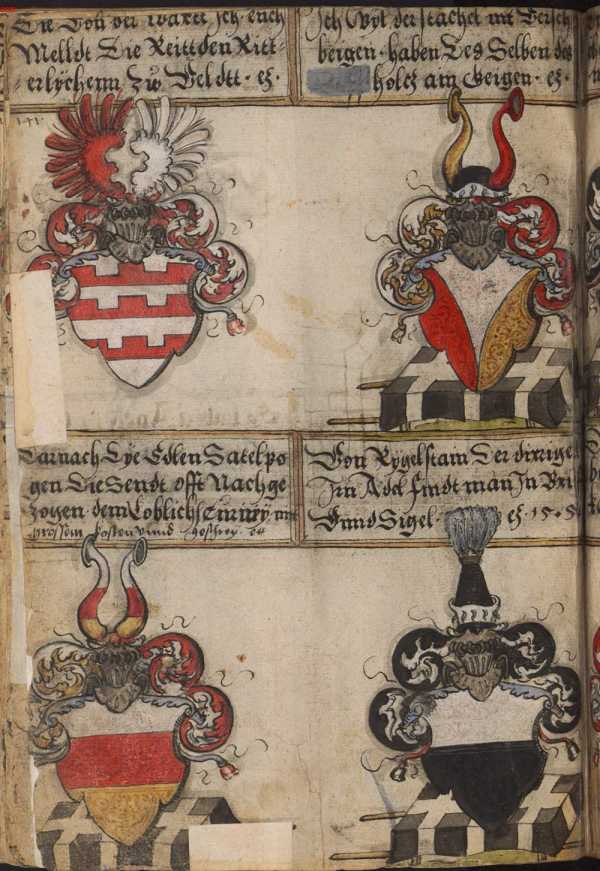 Die Von der wartt Ich euch
Melldt Die Reitt den Ritt-
-erlychenn Zů Veldtt · ez ·
Ich Wyl der stachel mit Veisch
beigen · haben Des Selben des
holcz am Geigen · ez ·
141 ·
Darnach Dye Edlen Satelpo
gen Die Sendt offt Nachge
zogen dem Loblichs Turney mit
grossem kosten vnnd
Von Rygelstain Der dirrige
Im Adel findt man In Bri
Vnnd Sigel · ez · 15 ·